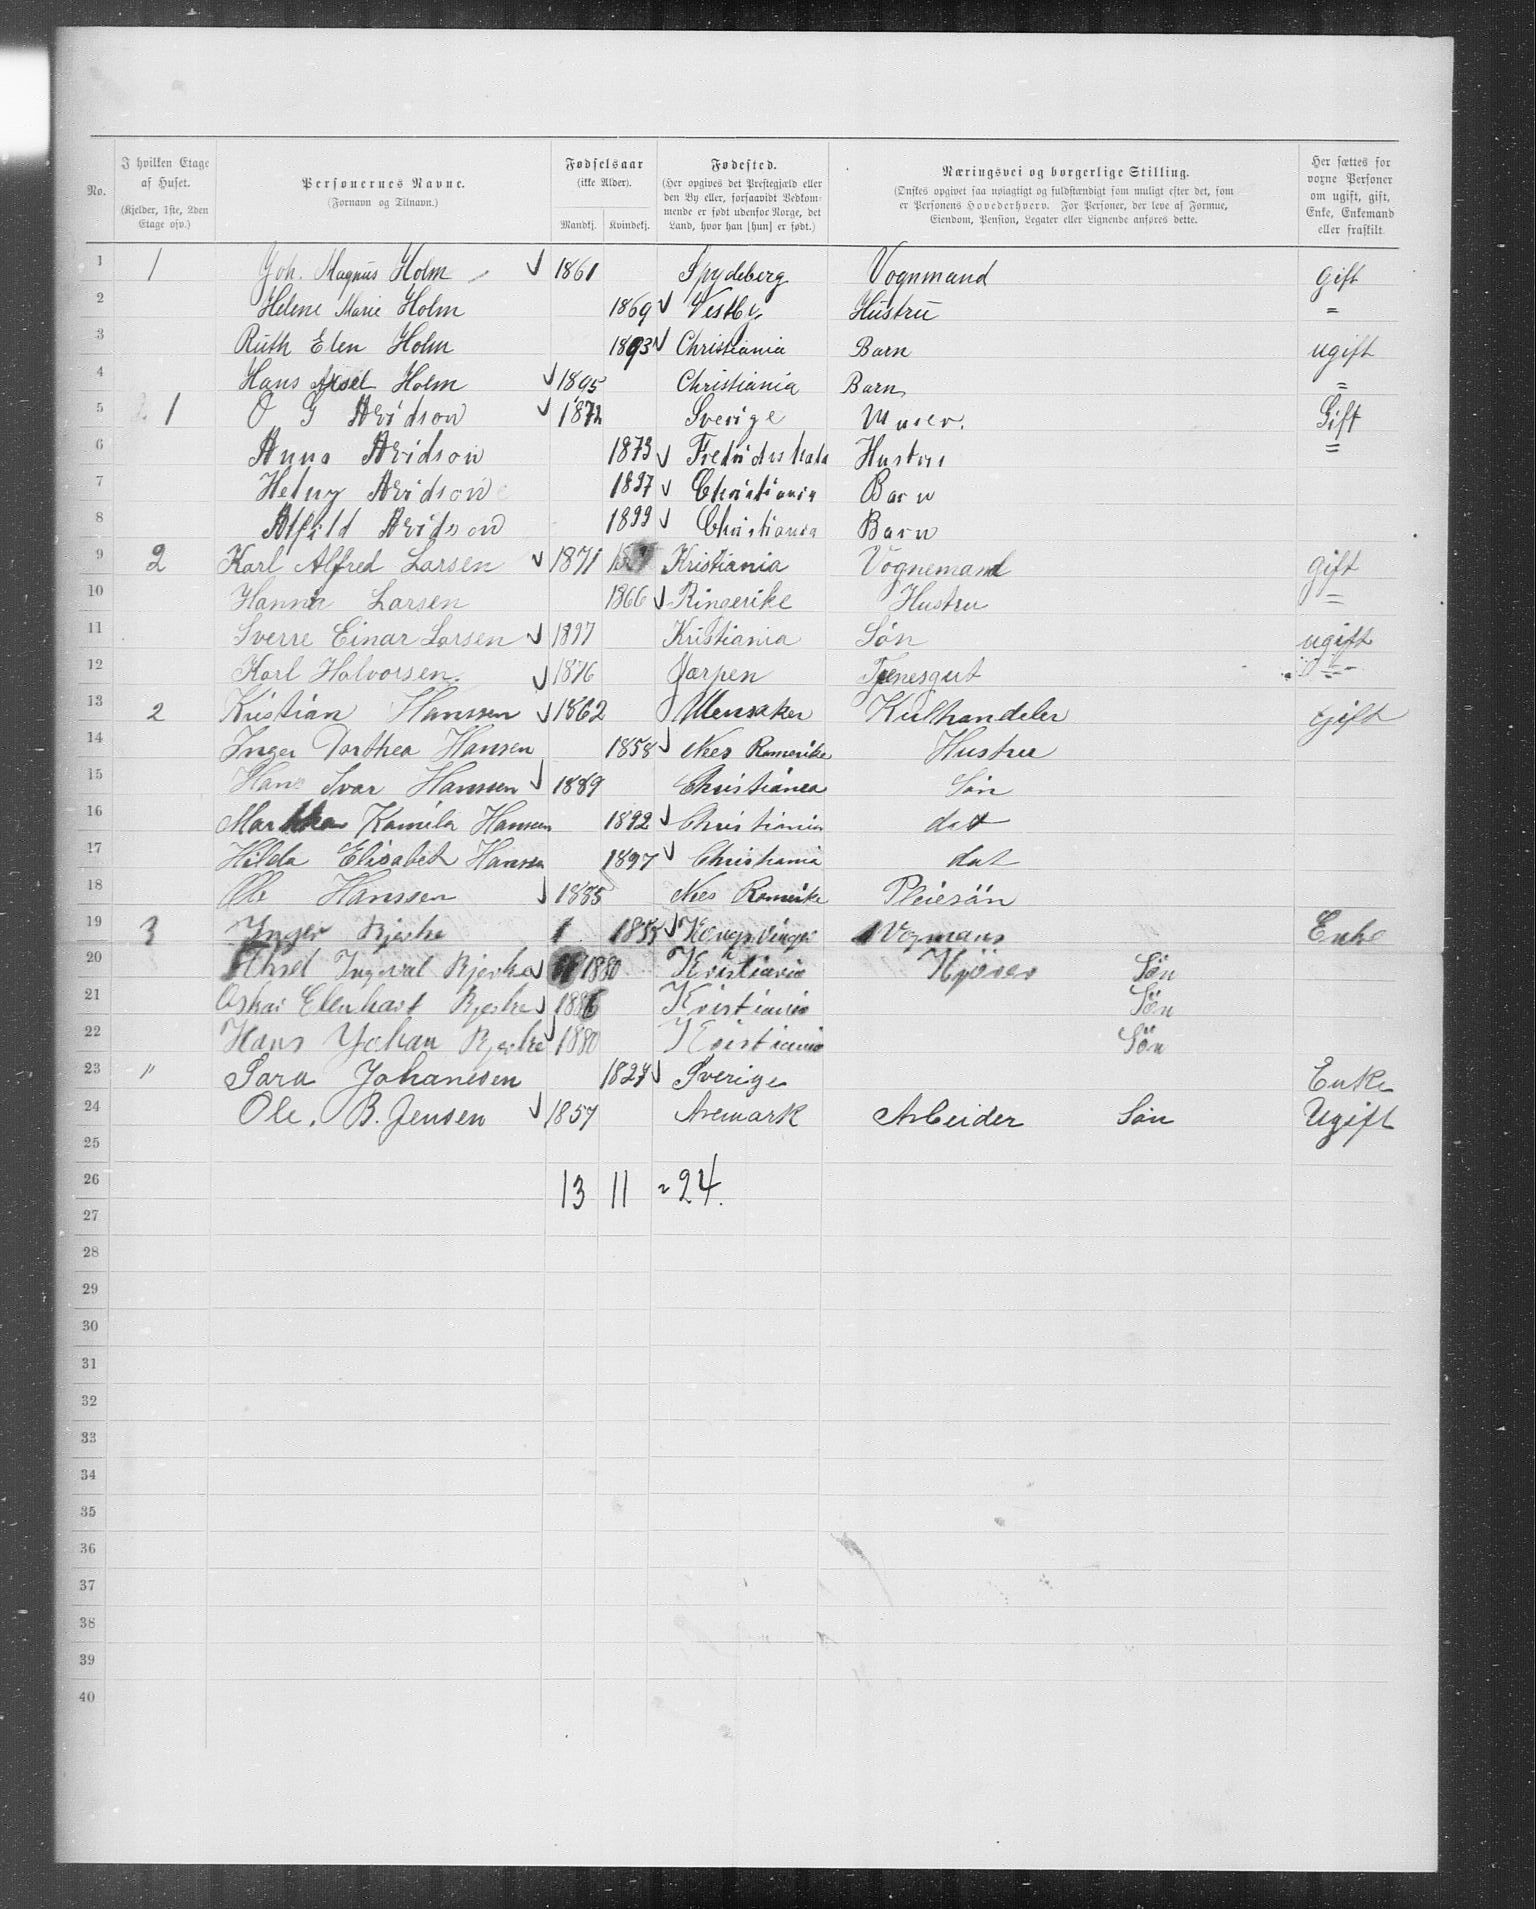 No. I hvilken Etage af Huset. (Kjelder, 1ste, 2den Etage osv.) Personernes Navne. (Fornavn og Tilnavn.) Fødselsaar (ikke Alder). Mandkj. Kvindekj. Fødested. (Her opgives det Prestegjæld eller den By eller, forsaavidt Vedkommende er født udenfor Norge, det Land, hvor han [hun] er født.) Næringsvei og borgerlige Stilling. (Ønskes opgivet saa nøiagtigt og fuldstændigt som muligt efter det, som er Personens Hovederhverv. For Personer, der leve af Formue, Eiendom, Pension, Legater eller Lignende anføres dette. Her sættes for voxne Personer om ugift, gift, Enke, Enkemand eller fraskilt.
1 1 Joh. Magnus Holm 1861 Spydeberg Vognmand gift
2 Helene Marie Holm 1869 Vestby Hustru "
3 Ruth Elen Holm 1893 Christiania Barn ugift
4 Hans Axsel Holm 1895 Christiania Barn "
5 1 O G Arvidson 1872 Sverige Murer. Gift
6 Anna Arvidson 1873 Fredrikshald Hustru "
7 Helny Arvidson 1897 Christiania Barn
8 Alfild Arvidson 1899 Christiania Barn
9 2 Karl Alfred Larsen 1871 Kristiania Vognemand gift
10 Hanna Larsen 1866 Ringerike Hustru "
11 Sverre Einar Larsen 1897 Kristiania Søn ugift
12 Karl Halvorsen. 1876 Varpen Tjenesgut
13 2 Kristian Hanssen 1862 Ullensaker Kulhandeler gift
14 Inger Dorthea Hansen 1858 Nes Romerike Hustru
15 Hans Ivar Hanssen 1889 Christiania Søn
16 Martha Kamila Hansen 1892 Christiania dat
17 Hilda Elisabet Hansen 1897 Christiania dat
18 Ole Hanssen 1885 Nes Romerike Pleiesøn
19 3 Inger Bjerke 1855 Kongsvinger Vogmans Enke
20 Aksel Ingvral Bjerke 1880 Kristiania Kjører Søn
21 Oskar Elenhart Bjerke 1886 Kristiania Søn
22 Hans Johan Bjerke 1880 Kristiania Søn
23 " Sara Johanesen 1827 Sverige Enke
24 Ole. B. Jensen 1857 Aremark Arbeider Søn Ugift
25
26 13 11 = 24.
27
28
29
30
31
32
33
34
35
36
37
38
39
40